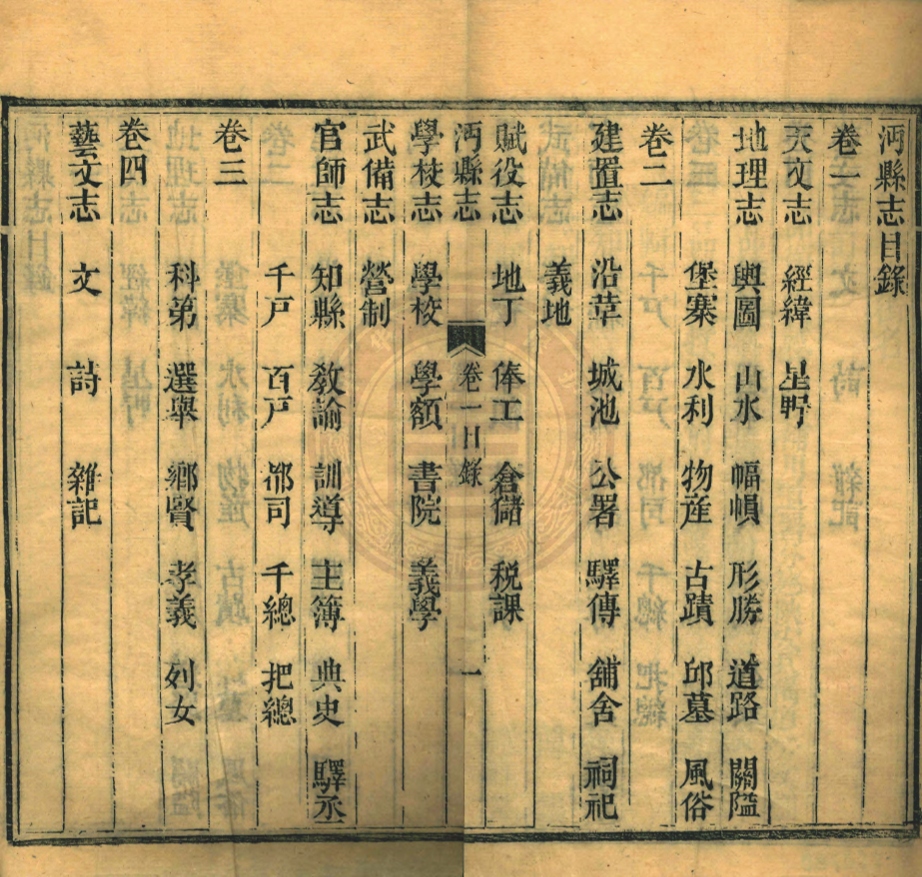 沔縣志目錄
卷一
天文志 經緯 星野
地理志 輿圖 山水 幅幀 形勝 道路 關隘
堡寨 水利 物産 古蹟 邱墓 風俗
卷二
建置志 沿革 城池 公署 驛傳 舖舍 祠祀
義地
賦役志 地丁 俸工 倉儲 税課
沔縣志 卷一目錄 一
學校志 學校 學額 書院 義學
武備志 營制
官師志 知縣 敎諭 訓導 主簿 典史 驛丞
千戸 百戸 都司 千總 把總
卷三
科第 選舉 鄉賢 孝義 列女
卷四
藝文志 文 詩 雜記